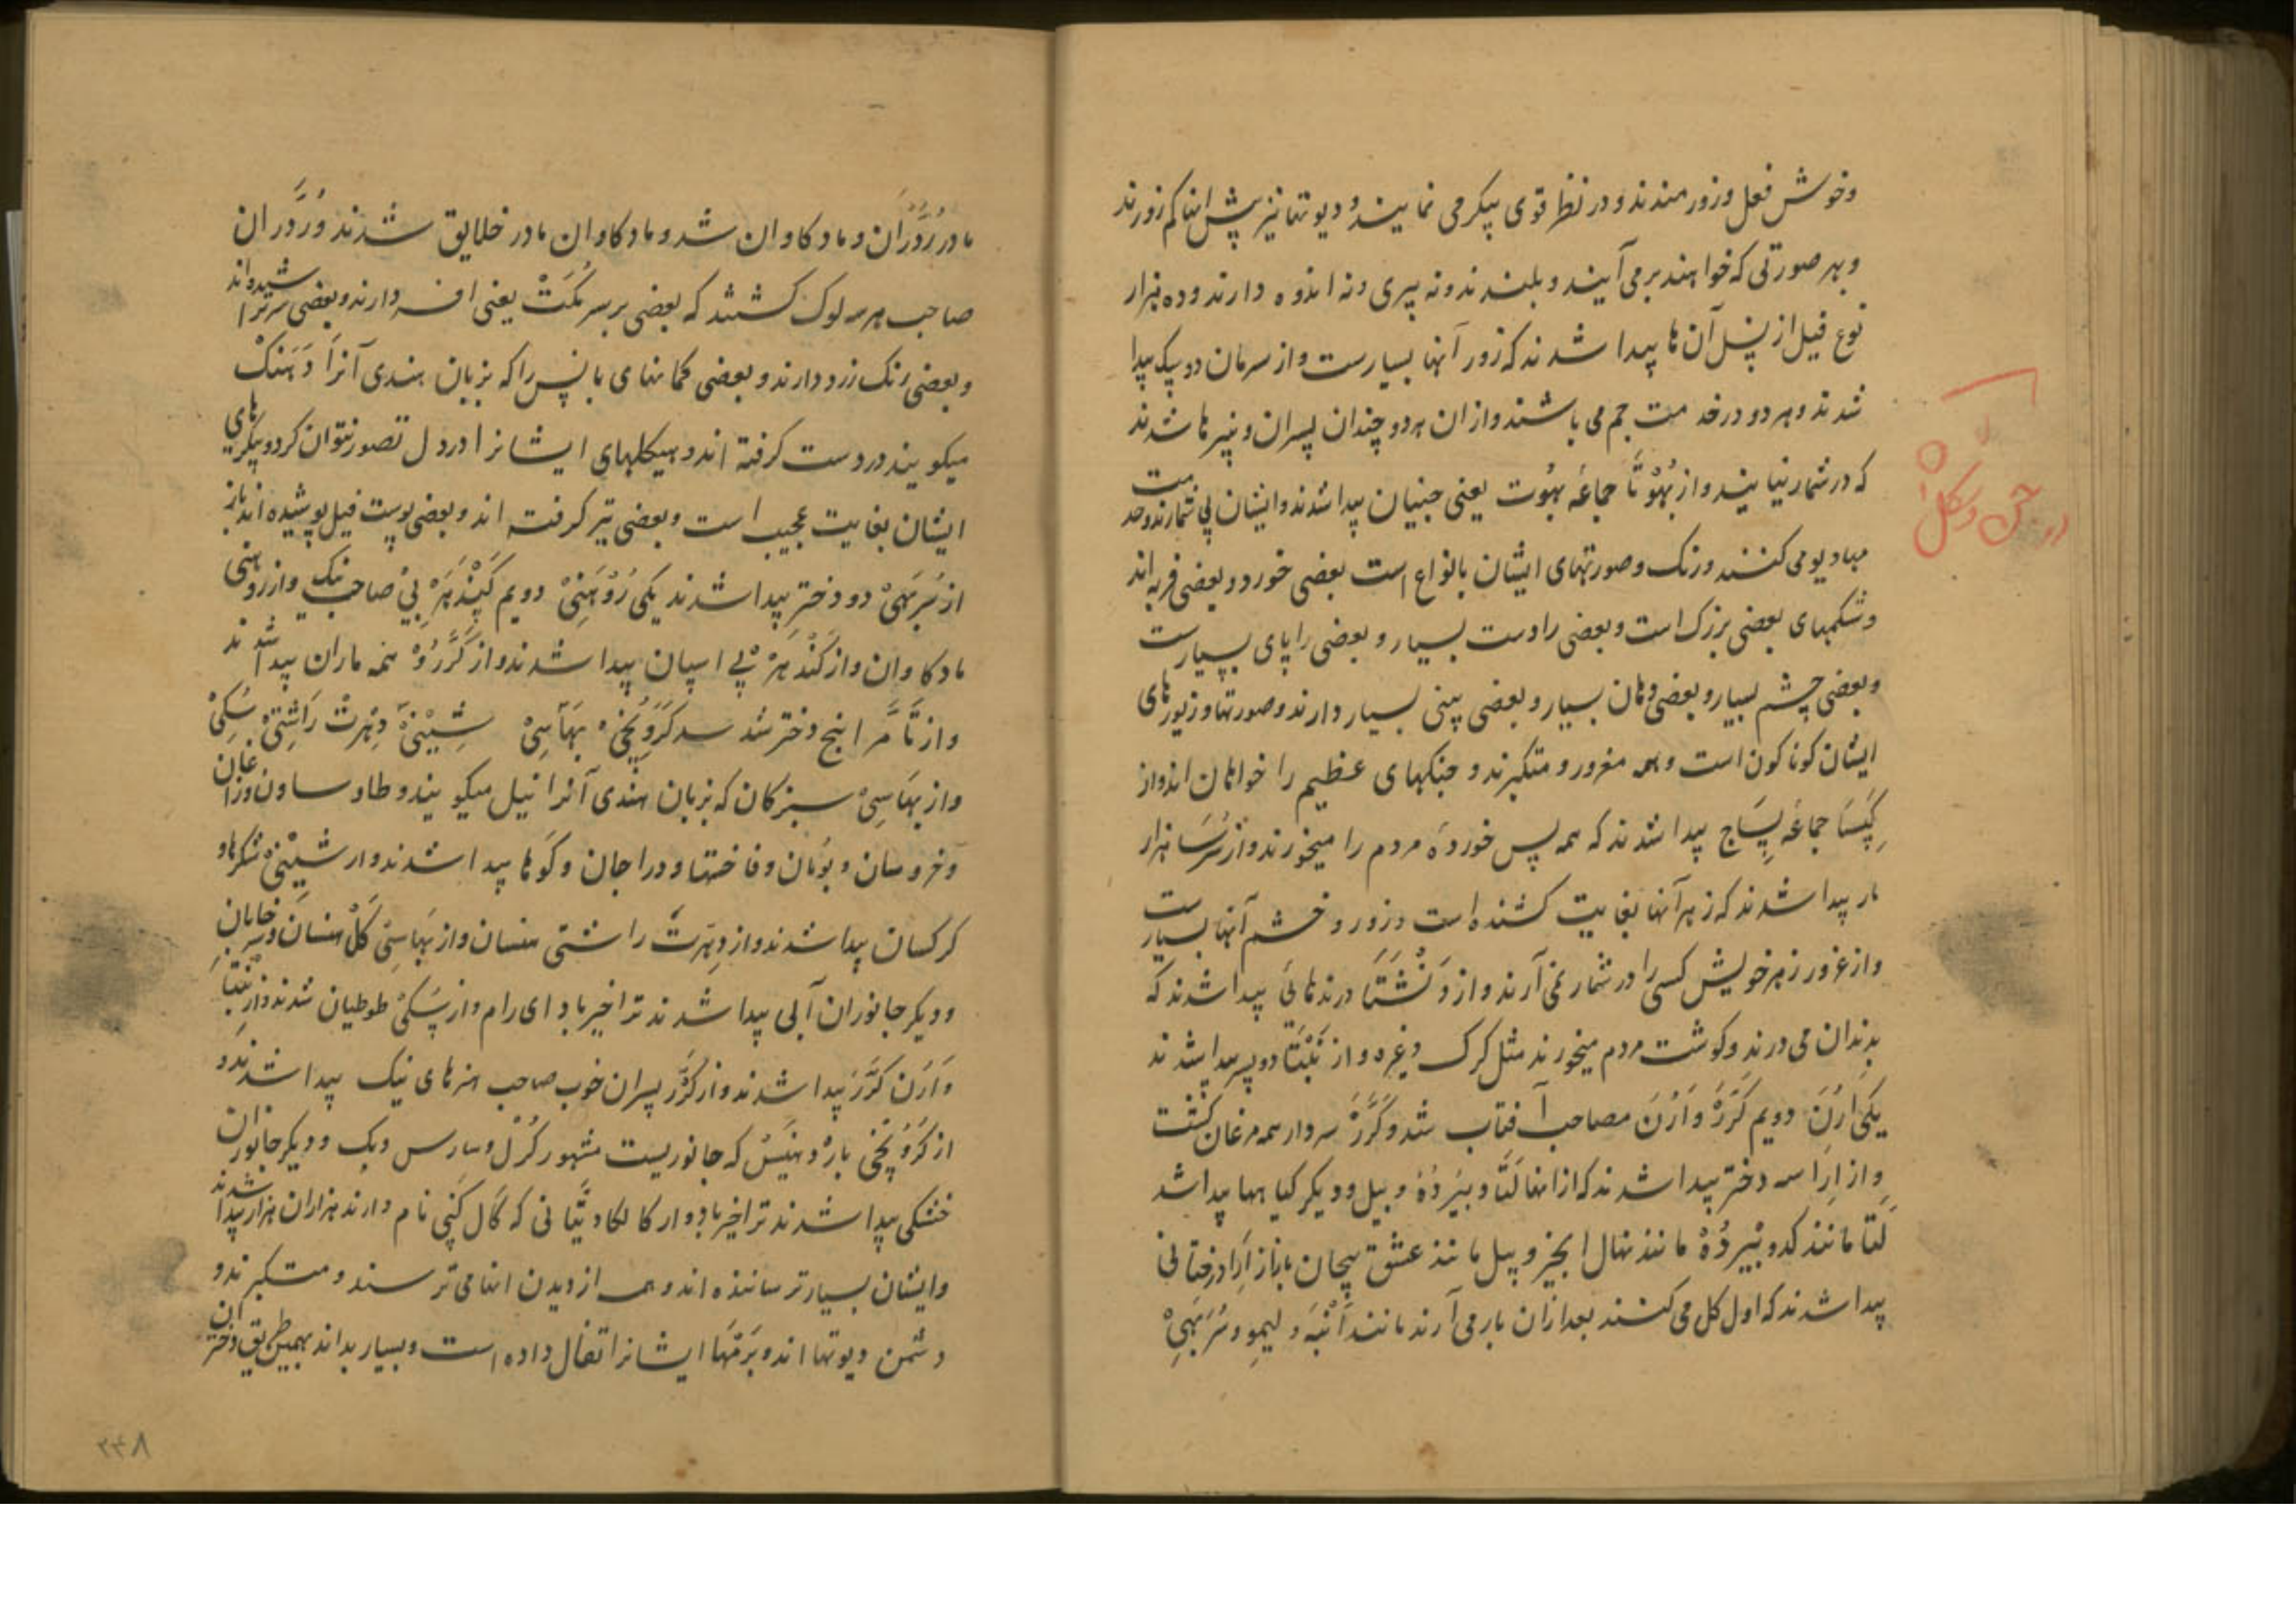 وخوش فعل وزور مندند ودر نظر قوی پیکر می نمایند و دیوتها نیز پیش اینها کم زورند
وبهر صورتی که خواهند برمی آیند و بلندند ونه پیری ونه اندوه دارند وده هزار
نوع فیل از نسل آن ها پیدا شدند که زور آنها بسیارست واز سرمان دو سگ پیدا
شدند وهر دو در خدمت جم می باشند وازان هردو چندان پسران ونبیرها شدند
که در شمار نیایند واز بهوتا جماعه بهوت یعنی جنیان پیدا شدند وایشان بی شمارند وخدمت
مهادیو می کنند ورنک وصورتهای ایشان بانواع است بعضی خورد وبعضی فربه اند
وشکمهای بعضی بزرک است وبعضی را دست بسیار و بعضی را پای بسیارست
وبعضی چشم بسیار وبعضی دهان بسیار وبعضی بینی بسیار دارند وصورتها وزیورهای
ایشان کوناکون است وهمه مغرور ومتکبرند وجنکهای عظیم را خواهان اند واز
کپسا جماعه پساج پیدا شدند که همه پس خورده مردم را میخورند واز سرسا هزار
مار پیدا شدند که زهر آنها بغایت کشنده است وزور وخشم آنها بسیارست
واز غرور زهر خویش کسی را در شمار نمی آرند واز دنشتا درندهائی پیدا شدند که
بدندان می درند وکوشت مردم میخورند مثل کرک وغیره واز بنتا دو پسر پیدا شدند
یکی ارن دویم کرر وارن مصاحب آفتاب شد وکرر سردار همه مرغان کشت
واز ارا سه دختر پیدا شدند که از اینها لتا وبیرده وبیل ودیکر کیاهها پیدا شد
لتا مانند کدو وبیرده مانند نهال انجیر وبیل مانند عشق پیچان باز از ارا درختانی
پیدا شدند که اول کل می کنند بعد ازان بار می آرند مانند انبه ولیمو وسربهی
مادر رُدّران وماد کاوان شد وماد کاوان مادر خلایق شدند ورُدّران
صاحب هر سه لوک کشتند که بعضی بر سر مکت یعنی افسر دارند وبعضی سر تراشیده اند
وبعضی رنک زرد دارند وبعضی کمانهای بانس را که بزبان هندی آنرا دهنک
میکویند در دست کرفته اند وهیکلهای ایشانرا در دل تصور نتوان کرد وپیکرهای
ایشان بغایت عجیب است وبعضی تیر کرفته اند وبعضی پوست فیل پوشیده اند باز
از سربهی دو دختر پیدا شدند یکی روهنی دویم کندهربی صاحب نیک واز روهنی
مادکاوان واز کندهربی اسپان پیدا شدند واز کدرو همه ماران پیدا شدند
واز تامرا پنج دختر شد کروپخی بهاسی شینی دهرت راشتی سکی
واز بهاسی سبزکان که بزبان هندی آنرا نیل میکویند وطاوسان وزاغان
وخروسان وبومان وفاختها ودراجان وکوها پیدا شدند واز شینی شکرها و
کرکسان پیدا شدند واز دهرت راشتی هنسان واز بهاسی کل هنسان وسرخابان
ودیکر جانوران آبی پیدا شدند ترا خیر باد ای رام واز سکی طوطیان شدند واز بنتا
وارن کرر پیدا شدند واز کرر پسران خوب صاحب هنرهای نیک پیدا شدند و
از کروپخی که جانوریست مشهور کرل وسارس وبک ودیکر جانوران
خشکی پیدا شدند ترا خیر باد واز کالکا دیتانی که کال کنپی نام دارند هزاران هزار پیدا شدند
وایشان بسیار ترساننده اند وهمه از دیدن اینها می ترسند ومتکبرند و
دشمن دیوتها اند وبرمها ایشانرا اتفال داده است وبسیار بداند بهمین طریق دختران
۲۴۸